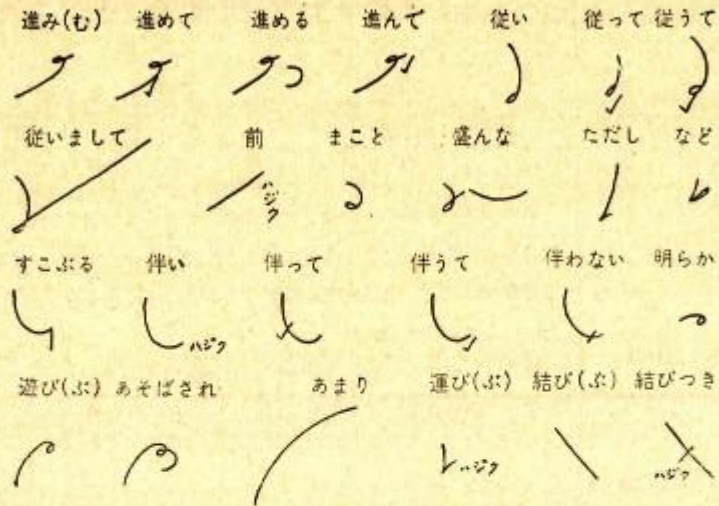 進み(む) 進めて 進める 進んで 従い 従って 従うて
従いまして 前 まこと 盛んな ただし など
ハジク
すこぶる 伴い 伴って 伴うて 伴わない 明らか
ハジク
遊び(ぶ) あそばされ あまり 運び(ぶ) 結び(ぶ) 結びつき
ハジク ハジク